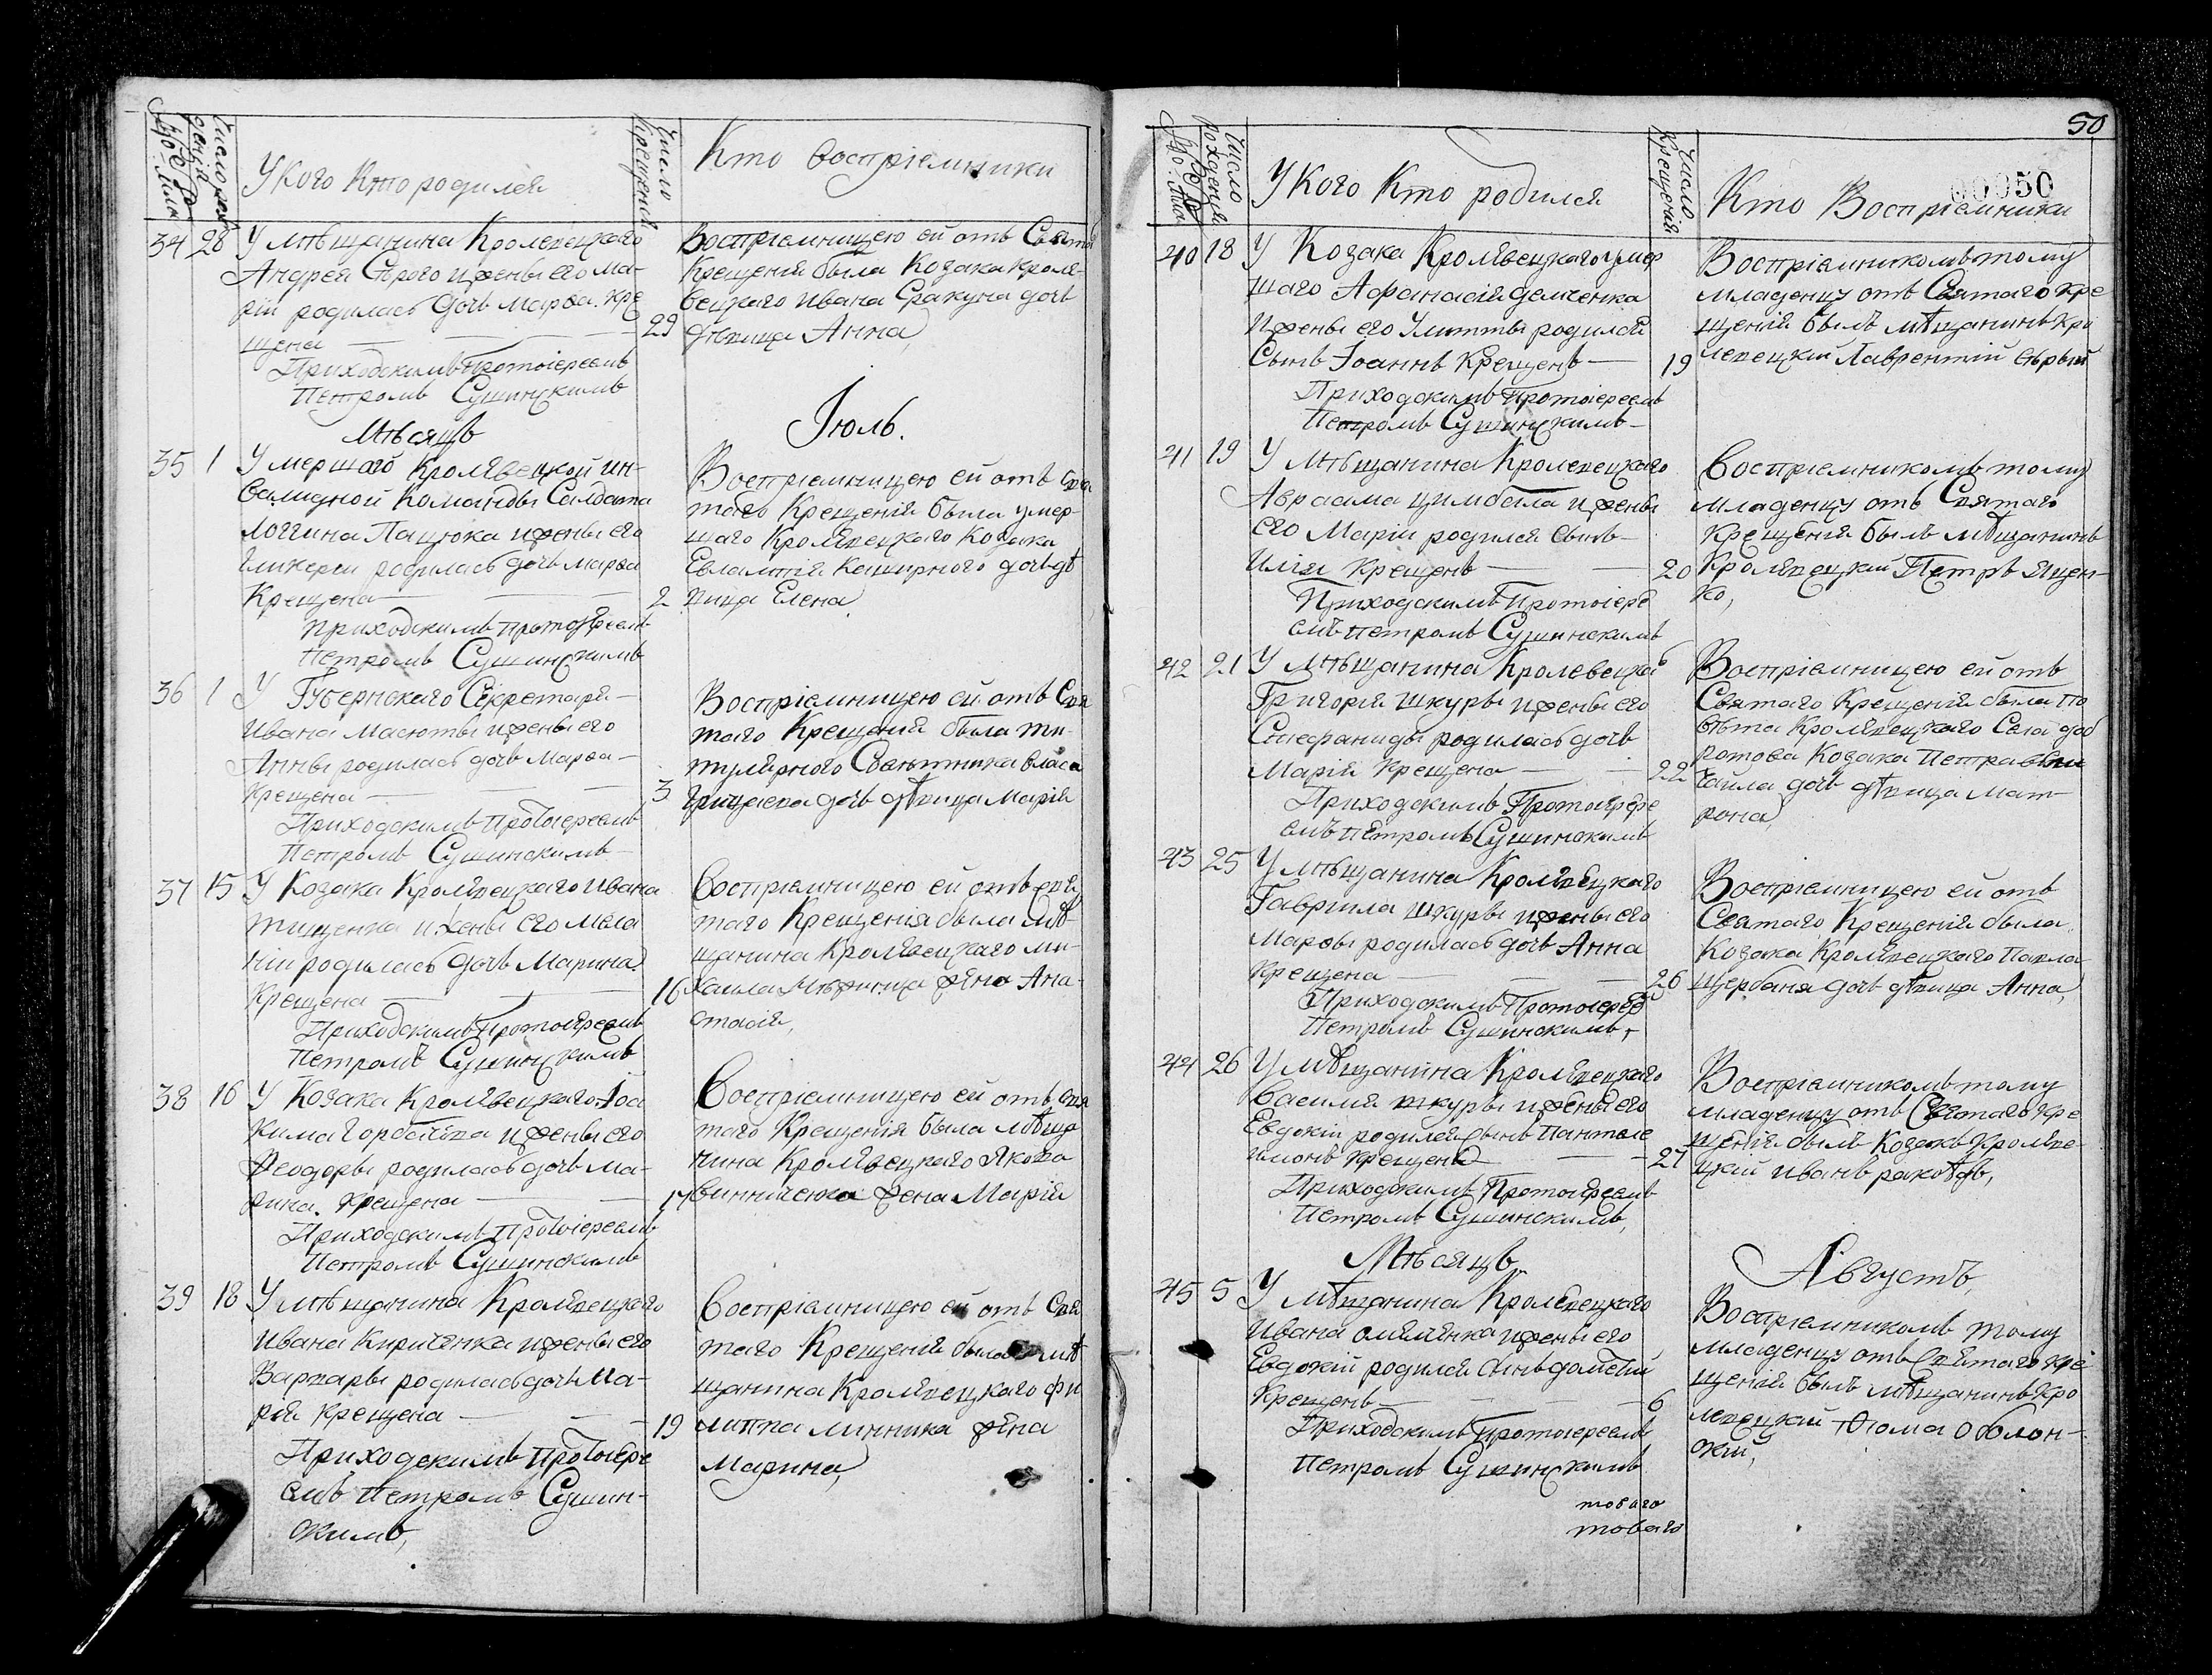 Число рож
деній
Число
Крещенія
У Кого Кто родился
Кто воспріемники
34 28 У мѣщанина Кролевецкаго
Андрея Сѣрого и жены его Ма-
ріи родилась дочь Марѳа. Кре
щена 29
Приходскимъ Протоіереемъ
Петромъ Сушинскимъ
Воспріемницею ей отъ Свята
Крещенія была Козака Кроле-
вецкаго Ивана Сракуна дочь
дѣвица Анна,
Мѣсяцъ
Іюль.
35 1 Умершаго Кролевецкой ин-
валидной Команды Салдата
Логгина Пацюка и жены его
Гликереи родилась дочь Марѳа
Крещена 2
Приходскимъ Протоіереемъ
Петромъ Сушинскимъ
Воспріемницею ей отъ Свя
таго Крещенія была умер-
шаго Кролевецкаго Козака
Евлампія Каширного дочь дѣ
вица Елена
36 1 У Губернскаго Секретаря
Ивана Масюты и жены его
Анны родилась дочь Марѳа
Крещена 3
Приходскимъ Протоіереемъ
Петромъ Сушинскимъ
Воспріемницею ей отъ Свя
таго Крещенія была ти-
тулярного Совѣтника Власа
дочь дѣвица Марія
37 15 У Козака Кролевецкаго Ивана
Тищенка и жены его Мела
ніи родилась дочь Марина.
Крещена 16
Приходскимъ Протоіереемъ
Петромъ Сушинскимъ
Воспріемницею ей отъ Свя
таго Крещенія была мѣ-
щанина Кролевецкаго Ми-
хаила жена Ана-
стасія,
38 16 У Козака Кролевецкаго Іоа
кима и жены его
Феодоры родилась дочь Ма-
рина. Крещена 17
Приходскимъ Протоіереемъ
Петромъ Сушинскимъ
Воспріемницею ей отъ Свя
таго Крещенія была мѣща
нина Кролевецкаго Якова
Винниченка жена Марія
39 18 У мѣщанина Кролевецкаго
Ивана Кириченка и жены его
Варвары родилась дочь Ма-
рія Крещена 19
Приходскимъ Протоіере
емъ Петромъ Сушин-
скимъ,
Воспріемницею ей отъ Свя
таго Крещенія была мѣ
щанина Кролевецкаго Фи
липпа Линника жена
Марина,
50
00050
Число
рожденія
Число
Крещенія
У Кого Кто родился
Кто Воспріемники
40 18 У Козака Кролевецкаго умер
шаго Афанасія Демченка
и жены его Улитты родился
Сынъ Іоаннъ Крещенъ 19
Приходскимъ Протоіереемъ
Петромъ Сушинскимъ
Воспріемникомъ тому
младенцу отъ Святаго Кре
щенія былъ мѣщанинъ Кро
левецкій Лаврентій Сѣрый
41 19 У мѣщанина Кролевецкаго
Авраама Цимбала и жены
его Маріи родился сынъ
Илія Крещенъ 20
Приходскимъ Протоіере
емъ Петромъ Сушинскимъ
Воспріемникомъ тому
младенцу отъ Святаго
Крещенія былъ мѣщанинъ
Кролевецкій Петръ Яцен-
ко,
42 21 У мѣщанина Кролевецкаго
Григорія Шкуры и жены его
Стефаниды родилась дочь
Марія Крещена 22
Приходскимъ Протоіере
емъ Петромъ Сушинскимъ
Воспріемницею ей отъ
Святаго Крещенія была По
вѣта Кролевецкаго Села доб
ротова Козака Петра
дочь дѣвица Мат-
рона,
43 25 У мѣщанина Кролевецкаго
Гавриила Шкуры и жены его
Марѳы родилась дочь Анна
Крещена 26
Приходскимъ Протоіерее
Петромъ Сушинскимъ,
Воспріемницею ей отъ
Святаго Крещенія была
Козака Кролевецкаго Павла
Щербаня дочь дѣвица Анна,
44 26 У мѣщанина Кролевецкаго
Василія Шкуры и жены его
Евдокіи родился сынъ Пантеле
имонъ Крещенъ 27
Приходскимъ Протоіереемъ
Петромъ Сушинскимъ,
Воспріемникомъ тому
младенцу отъ Святаго Кре
щенія былъ Козакъ Кролеве
цкій Иванъ
Мѣсяцъ
Августъ,
45 5 У мѣщанина Кролевецкаго
Ивана Омелянка и жены его
Евдокіи родился сынъ Дометій
Крещенъ 6
Приходскимъ Протоіереемъ
Петромъ Сушинскимъ
Воспріемникомъ тому
младенцу отъ Святаго Кре
щенія былъ мѣщанинъ Кро
левецкій Ѳома Оболон-
скій,
товаго
товаго